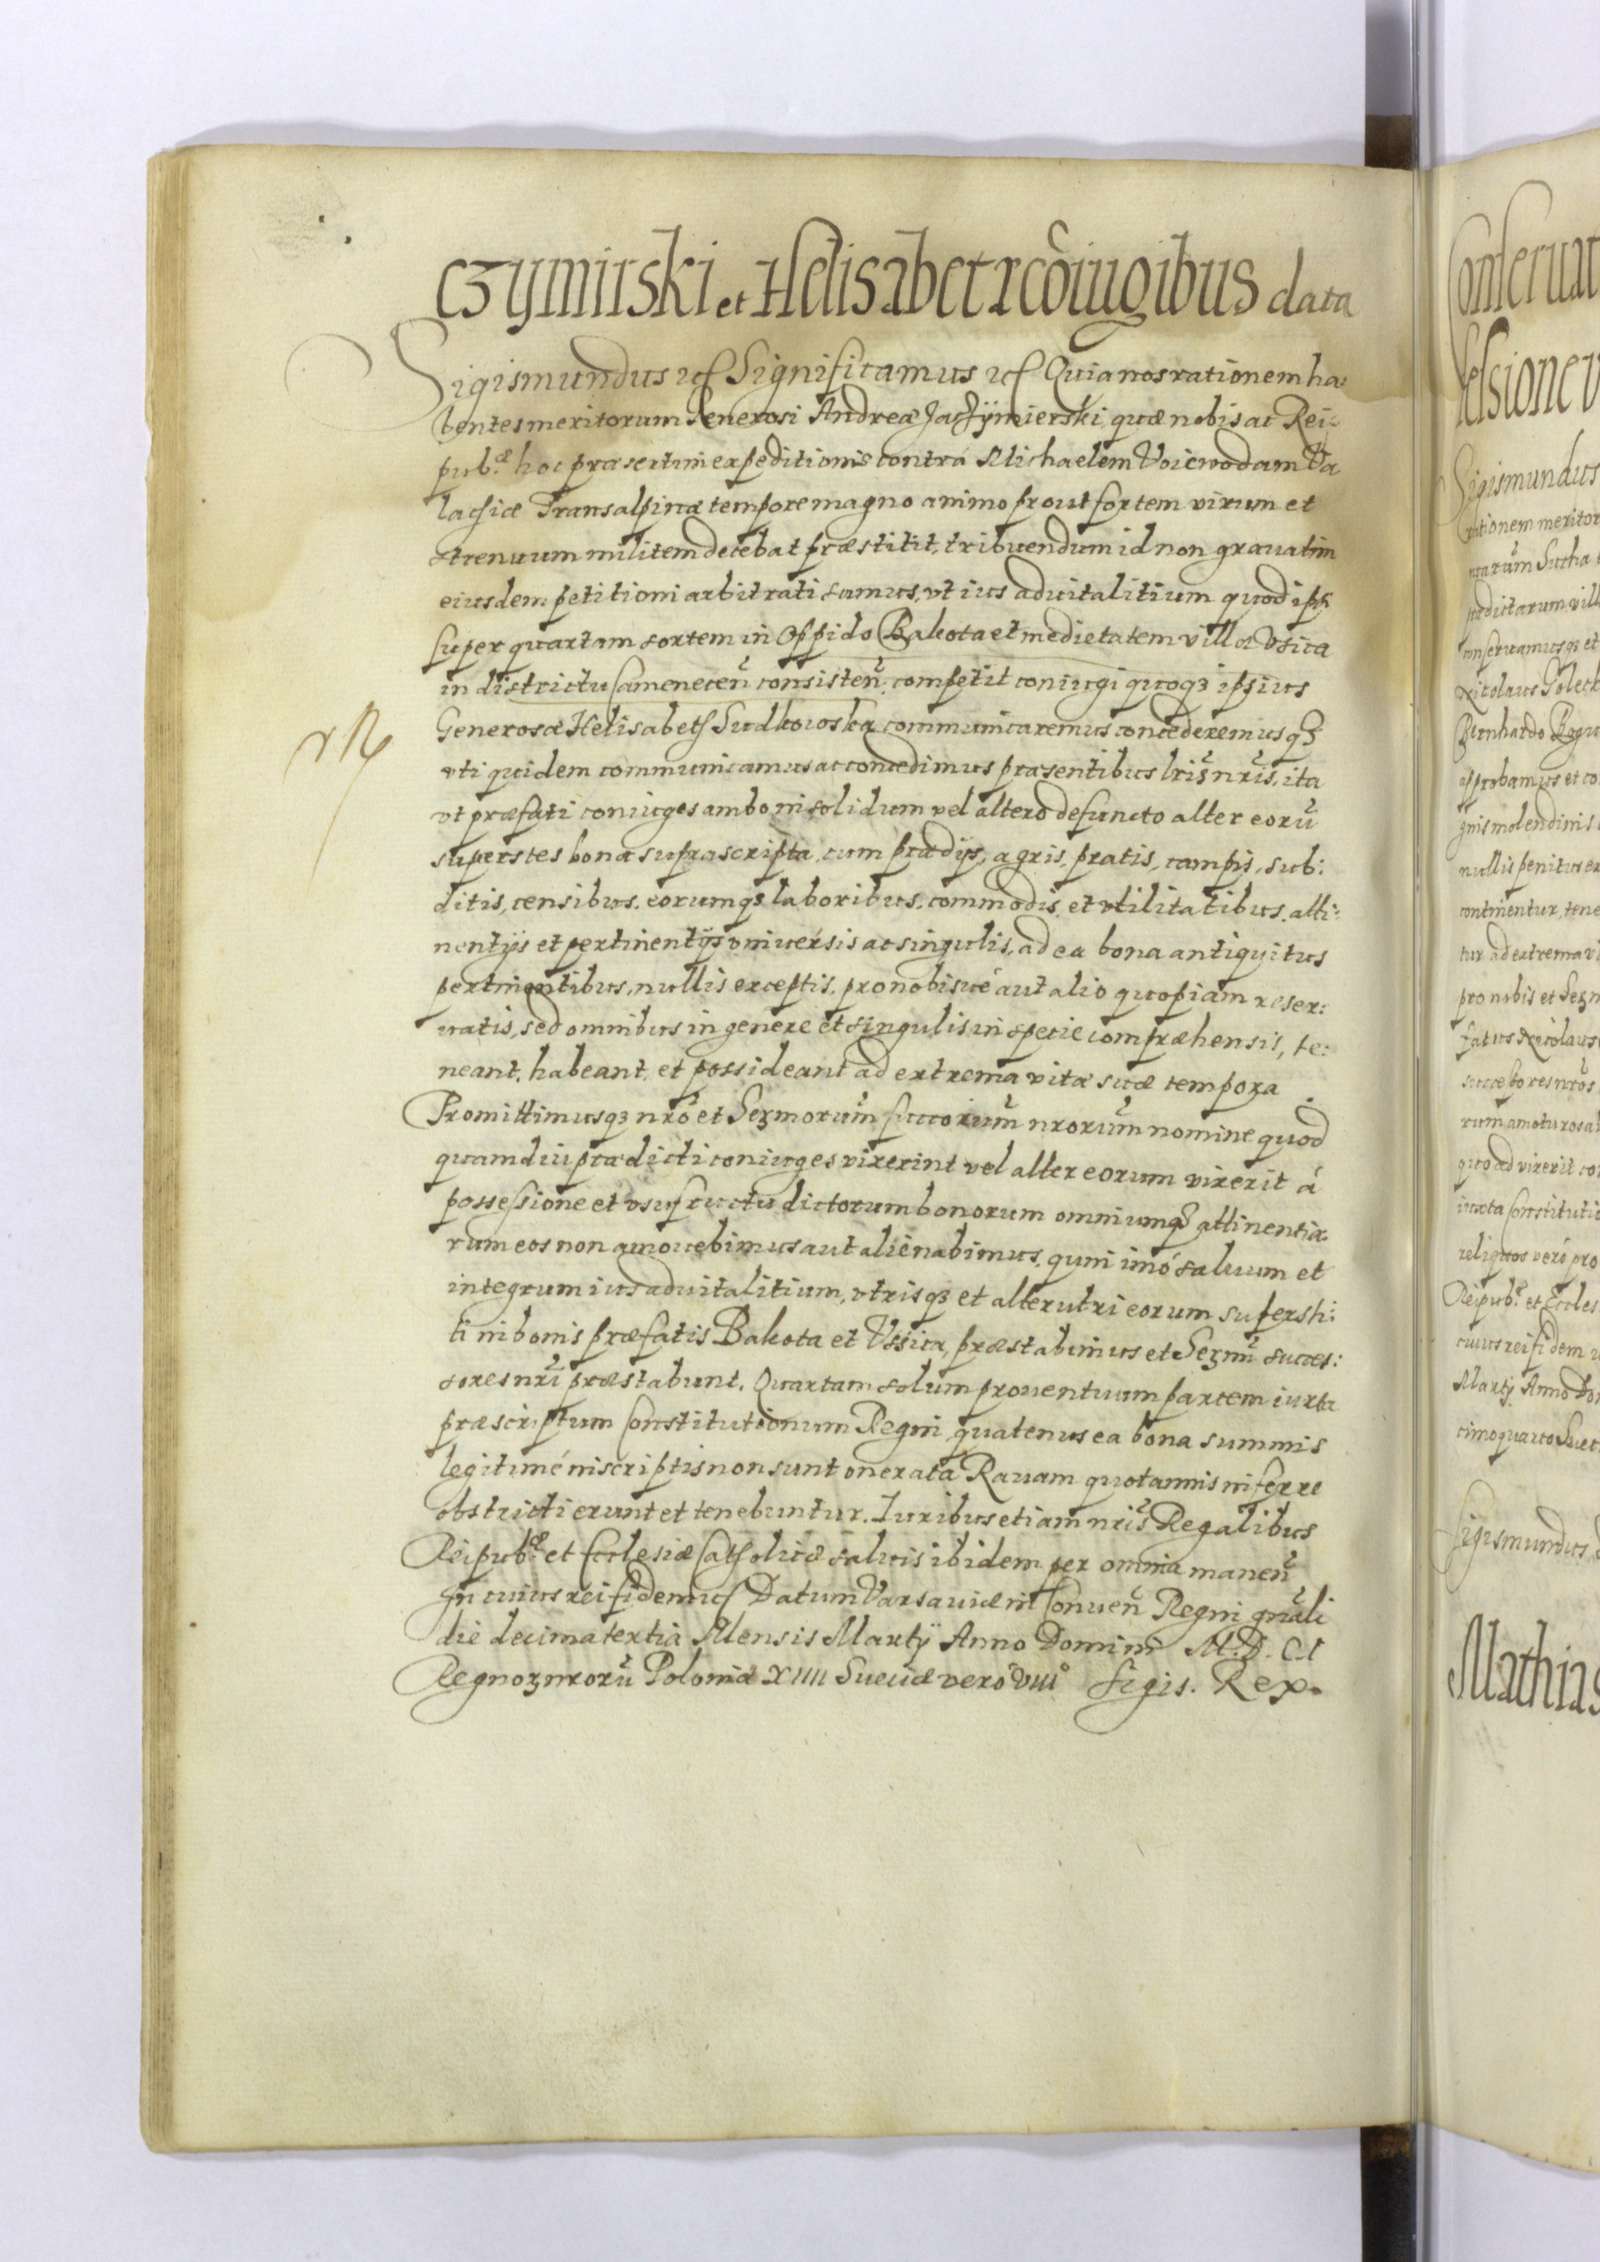 czymirski et Helisabet recõiugibus data
Sigismundus etc Significamus etc Quia nos rationem ha:
bentes meritorum Generosi Andreæ Jaczÿmierski, quæ nobis ac Rei:
pub.æ hoc præsertim expeditionis contrá Michaelem Voiewodam Va
lachiæ Transalpinæ tempore magno animo prout fortem virum et
strenuum militem decebat præstitit, tribuendum id non grauatim
eiusdem petitioni arbitrati sumus, vt ius aduitalitium quod ipsi
super quartam sortem in Oppido Bakota et medietatem villæ Vsica
in districtu Camenecen̄ consisten̄. competit coniugi quoqȝ ipsius
Generosæ Helisabeth Sudkowska communicaremus concederemusqȝ
vti quidem communicamus ac concedimus præsentibus lris̄ nris̄, ita
vt præfati coniuges ambo in solidum vel altero defuncto alter eorū
superstes bona suprascripta, cum prædijs, agris, pratis, campis, sub:
ditis, censibus, eorumqȝ laboribus, commodis, et vtilitatibus, atti:
nentijs et pertinentijs vniuersis ac singulis, ad ea bona antiquitus
pertinentibus, nullis exceptis, pro nobis ué aut alio quopiam reser:
uatis, sed omnibus in genere et singulis in specie compræhensis, te:
neant, habeant, et possideant ad extrema vitæ suæ tempora.
Promittimusqȝ nrō et Serm̄orum succorum̄ nrorum̄ nomine quod
quamdiu prædicti coniuges vixerint vel alter eorum vixerit á
possessione et vsufructu dictorum bonorum omniumqȝ attinentia:
rum eos non amouebimus aut alienabimus, quin imó saluum et
integrum ius aduitalitium, vtrisqȝ et alterutri eorum supersti:
ti in bonis præfatis Bakota et Vssica, præstabimus et Serm̄i succes:
sores nrī præstabunt. Quartam solum prouentuum partem iuxta
præscriptum Constitutionum Regni, quatenus ea bona summis
legitimé inscriptis non sunt onerata Rauam quotannis inferre
obstricti erunt et tenebuntur. Iuribus etiam nris̄ Regalibus
Reipub.æ et Ecclesiæ Catholicæ saluis ibidem per omnia manen̄
In cuius rei fidem etc Datum Varsauiæ in Conuen̄ Regni gnāli
die decima tertia Mensis Martÿ Anno Domini M.D.C.I
Regnorȝ nrorū Poloniæ XIIII Sueciæ veró VIII° Sigis. Rex.
Conseruat
Sigismundus
rationem meritor
Bernhardo
approbamus et co
nullis penitus ex
continentur, tene
tur ad extrema vi
pro nobis et Serm
rum amoturos a
quoad vixerit
iuxta Constitutio
reliquos veró pro
Reipub.æ et Eccles
cuius rei fidem
Martÿ Anno Do
cimo quarto Suec
Sigismundus
Mathias